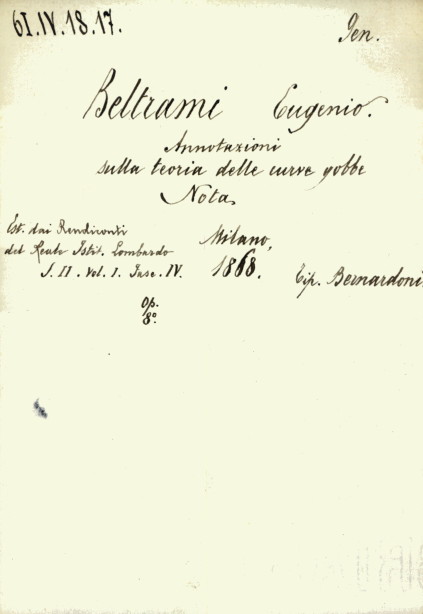 61.IV.18.17. Gen.
Beltrami Eugenio.
Annotazioni
sulla teoria delle curve gobbe
Nota
Est. dai Rendiconti
del Reale Istit. Lombardo
S. II. Vol. 1. Fasc. IV.
Milano,
1868.
Tip. Bernardoni.
Op.
8°